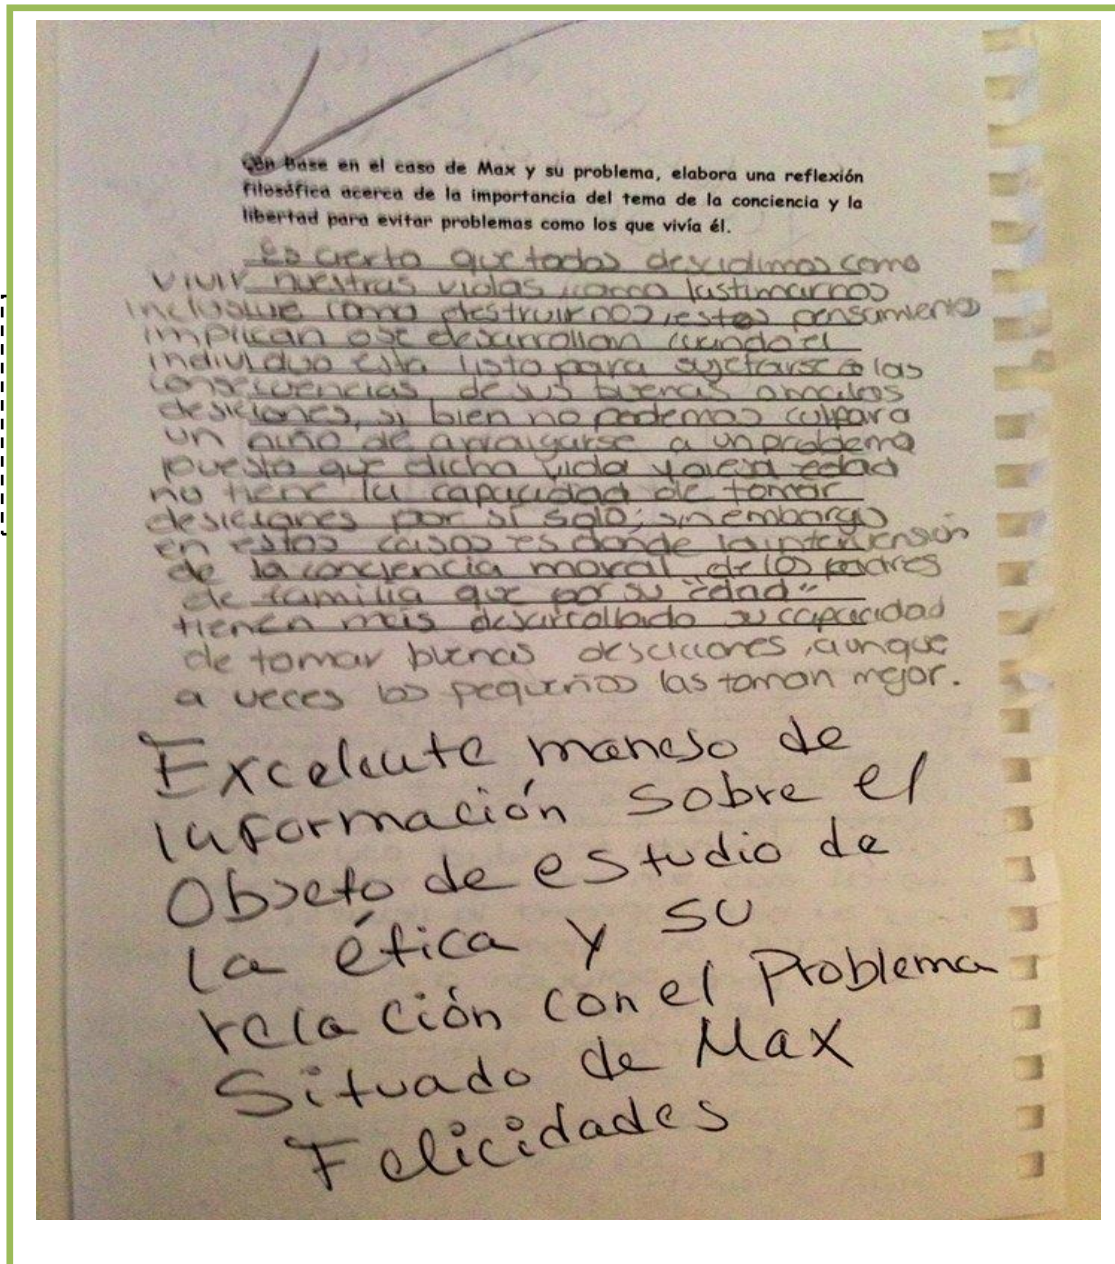 Con Base en el caso de Max y su problema, elabora una reflexión
filosófica acerca de la importancia del tema de la conciencia y la
libertad para evitar problemas como los que vivía él.
Es cierto que todos descidimos como
vivir nuestras vidas como lastimarnos
inclusive como destruirnos, estos pensamientos
implican o se desarrollan cuando el
individuo esta listo para sujetarse a las
consecuencias de sus buenas o malas
desiciones, si bien no podemos culpar a
un niño de arraigarse a un problema
puesto que dicha vida y a esa edad
no tiene la capacidad de tomar
desiciones por si solo; sin embargo
en estos casos es donde la intervensión
de la conciencia moral de los padres
de familia que por su "edad"
tienen más desarrollado su capacidad
de tomar buenas desciciones, aunque
a veces los pequeños las toman mejor.
Excelente manejo de
información sobre el
Objeto de estudio de
la ética y su
relación con el Problema
Situado de Max
Felicidades